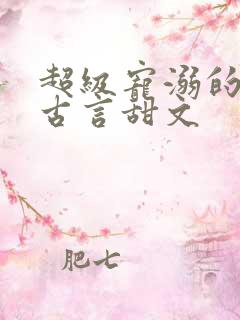 超级宠溺的
古言甜文
肥七